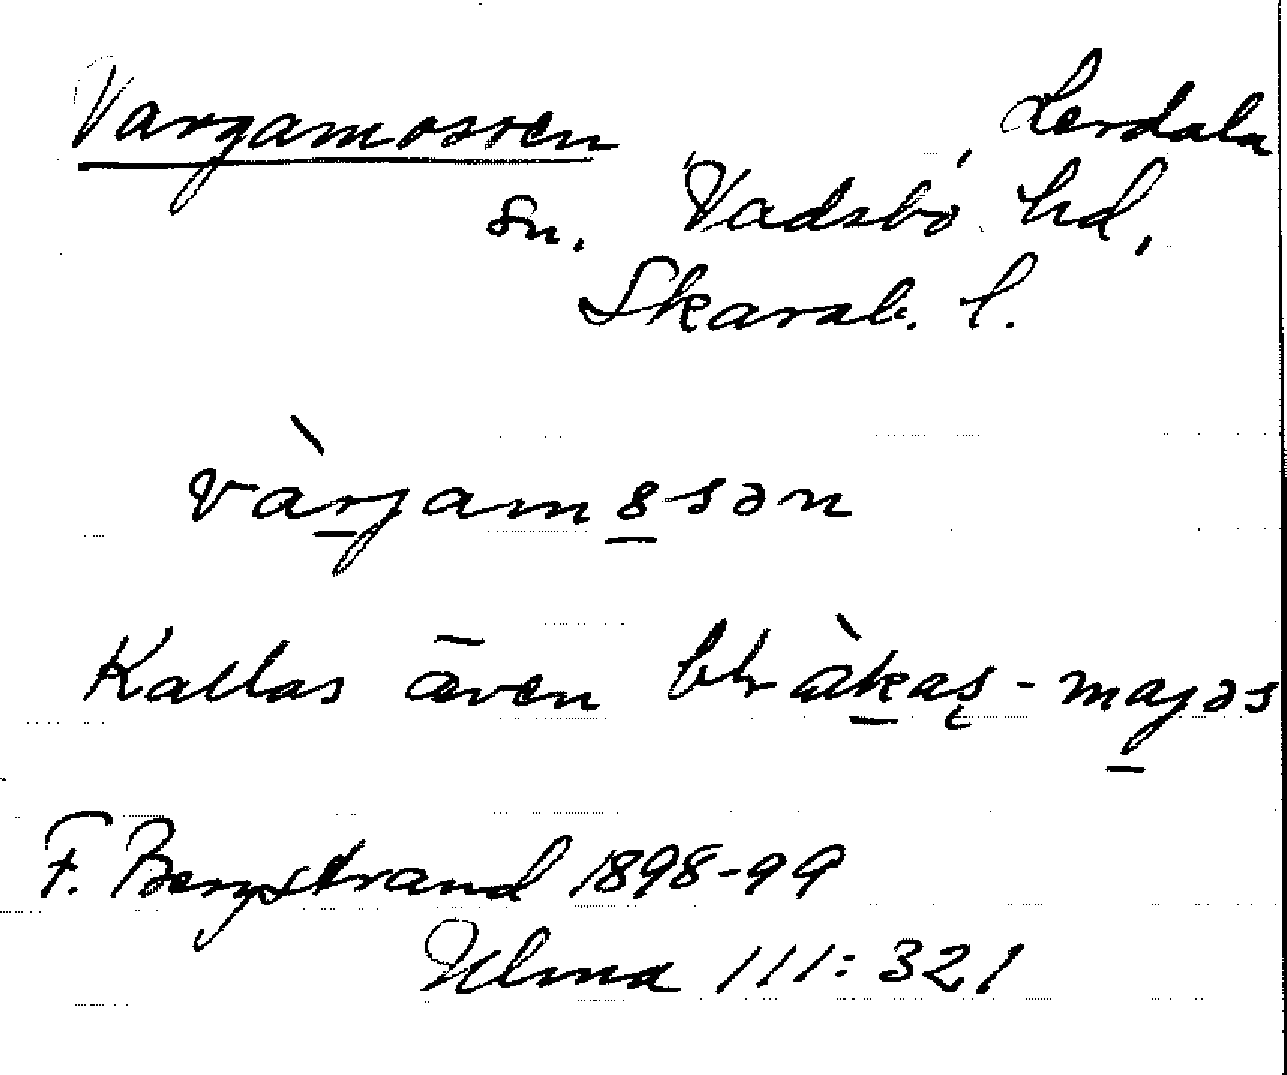 Vargamossen, Lerdala
sn. Vadsbo hd,
Skarab. l.
vàrjam8sən
Kallas även
F. Bergstrand 1898-99
Ulma 111:321